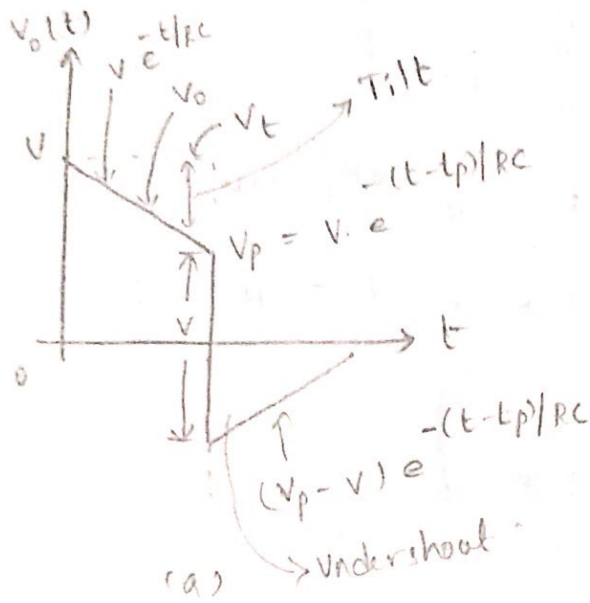 V₀(t)
V e^-t/RC
V₀
V_t
Tilt
V
V_p = V. e^-(t-tp)/RC
V
t
0
(V_p - V) e^-(t-tp)/RC
Undershoot
(a)